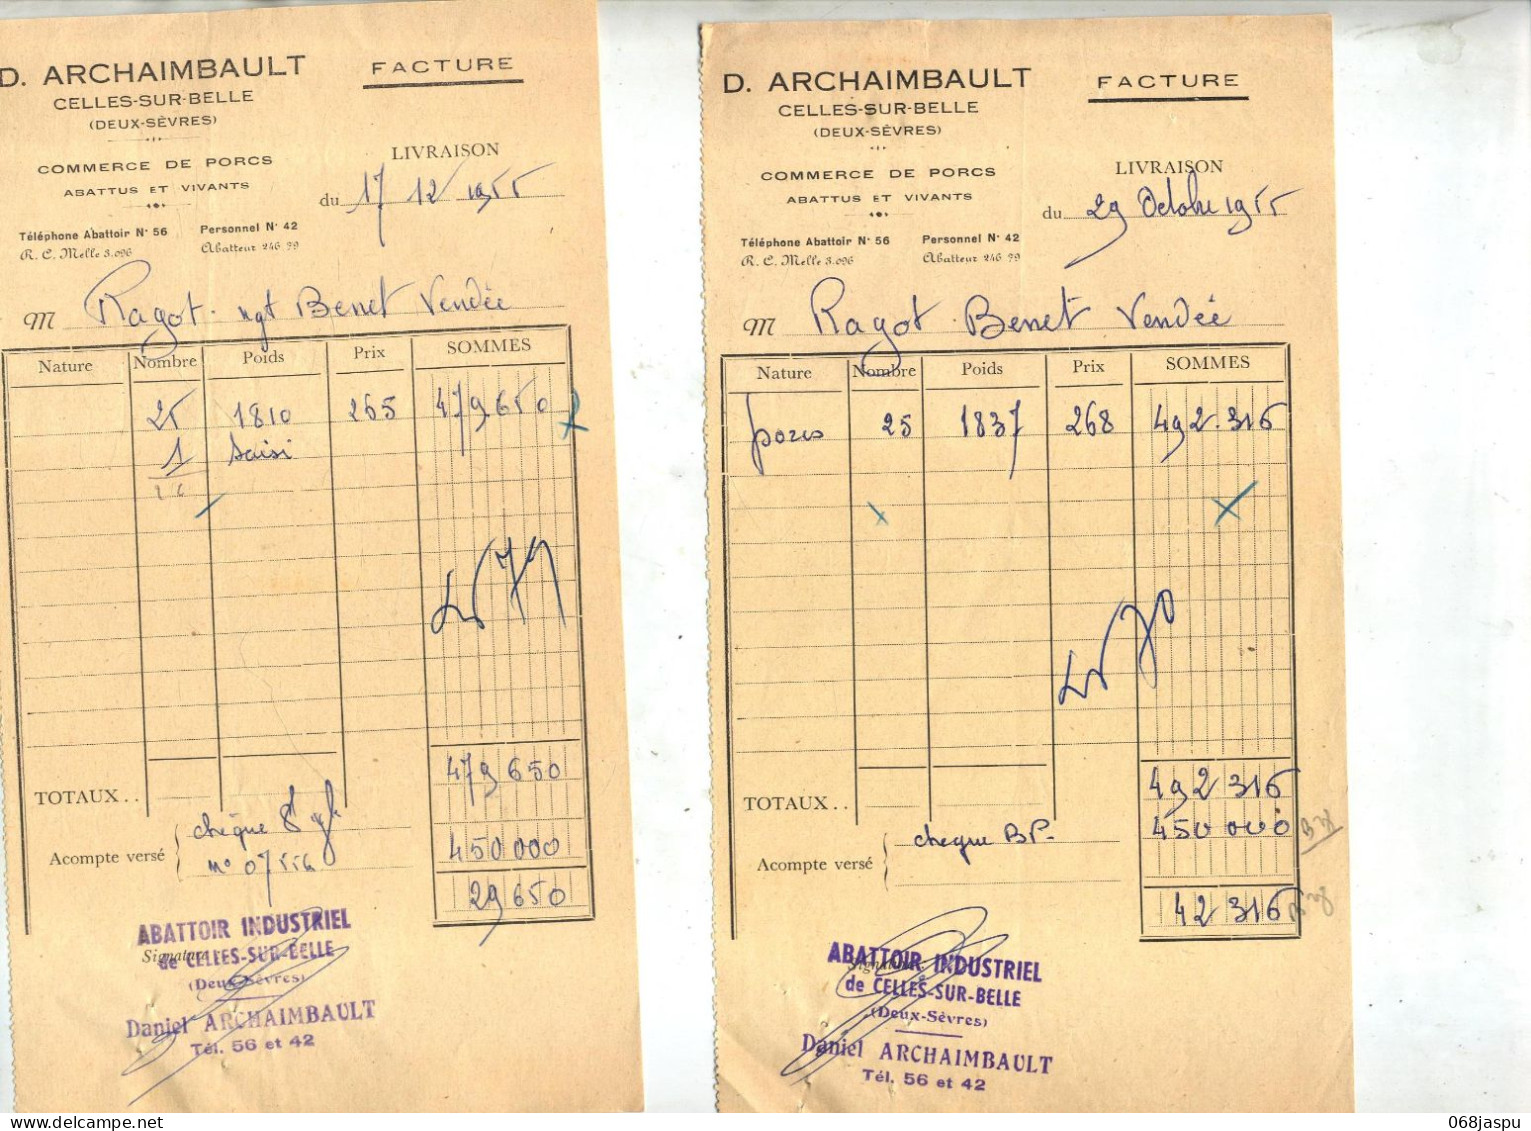 D. ARCHAIMBAULT
CELLES-SUR-BELLE
(DEUX-SÈVRES)
COMMERCE DE PORCS
ABATTUS ET VIVANTS
Téléphone Abattoir N° 56 Personnel N° 42
R. C. Melle 3.096 Abatteur 246 79
FACTURE
LIVRAISON
du 17 12 1955
M Ragot ngt Benet Vendée
Nature Nombre Poids Prix SOMMES
25 1810 265 479.650
1 saisi
479 650
TOTAUX..
Acompte versé
chèque
n° 07556
450 000
29 650
Signature
ABATTOIR INDUSTRIEL
de CELLES-SUR-BELLE
(Deux-Sèvres)
Daniel ARCHAIMBAULT
Tél. 56 et 42
D. ARCHAIMBAULT
CELLES-SUR-BELLE
(DEUX-SÈVRES)
COMMERCE DE PORCS
ABATTUS ET VIVANTS
Téléphone Abattoir N° 56 Personnel N° 42
R. C. Melle 3.096 Abatteur 246 79
FACTURE
LIVRAISON
du 29 Octobre 1955
M Ragot Benet Vendée
Nature Nombre Poids Prix SOMMES
porcs 25 1837 268 492.316
TOTAUX.. 492 316
450 000
Acompte versé chèque BP.
42 316
Signature
ABATTOIR INDUSTRIEL
de CELLES-SUR-BELLE
(Deux-Sèvres)
Daniel ARCHAIMBAULT
Tél. 56 et 42
068jaspu